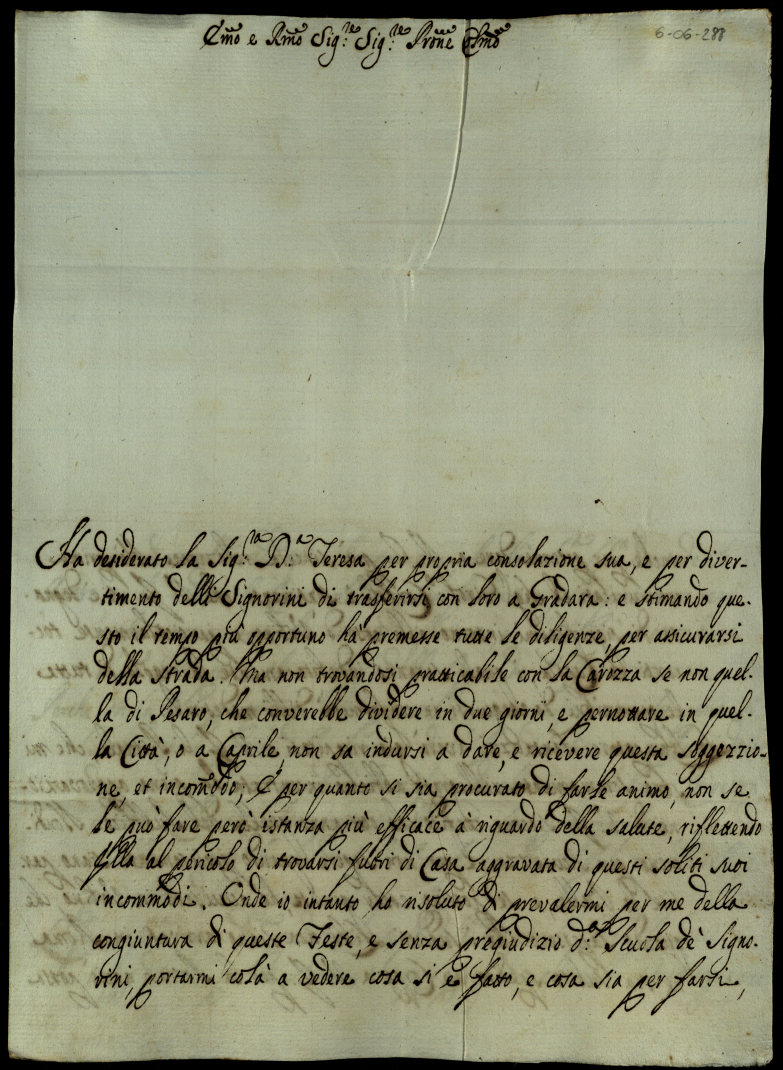 Emo e Rmo Sig:re Sig:re Prone Colmo
6-06-288
Ha desiderato la Sig:ra D:a Teresa per propria consolazione sua, e per diver-
timento delli Signorini di trasferirsi con loro a Gradara: e stimando que-
sto il tempo più opportuno hà premesse tutte le diligenze, per assicurarsi
della strada. Ma non trovandosi pratticabile con la Carozza se non quel-
la di Pesaro, che converebbe dividere in due giorni, e pernottare in quel-
la Città, o a Caprile, non sa indursi a dare, e ricevere questa soggezzio-
ne, et incommodo; E per quanto si sia procurato di farle animo, non se
le può fare però istanza più efficace à riguardo della salute, riflettendo
Ella al pericolo di trovarsi fuori di Casa aggravata di questi soliti suoi
incommodi. Onde io intanto ho risoluto di prevalermi per me della
congiuntura di queste Feste, e senza pregiudizio d:a Scuola de' Signo-
rini, portarmi colà a vedere cosa si è fatto, e cosa sia per farsi,